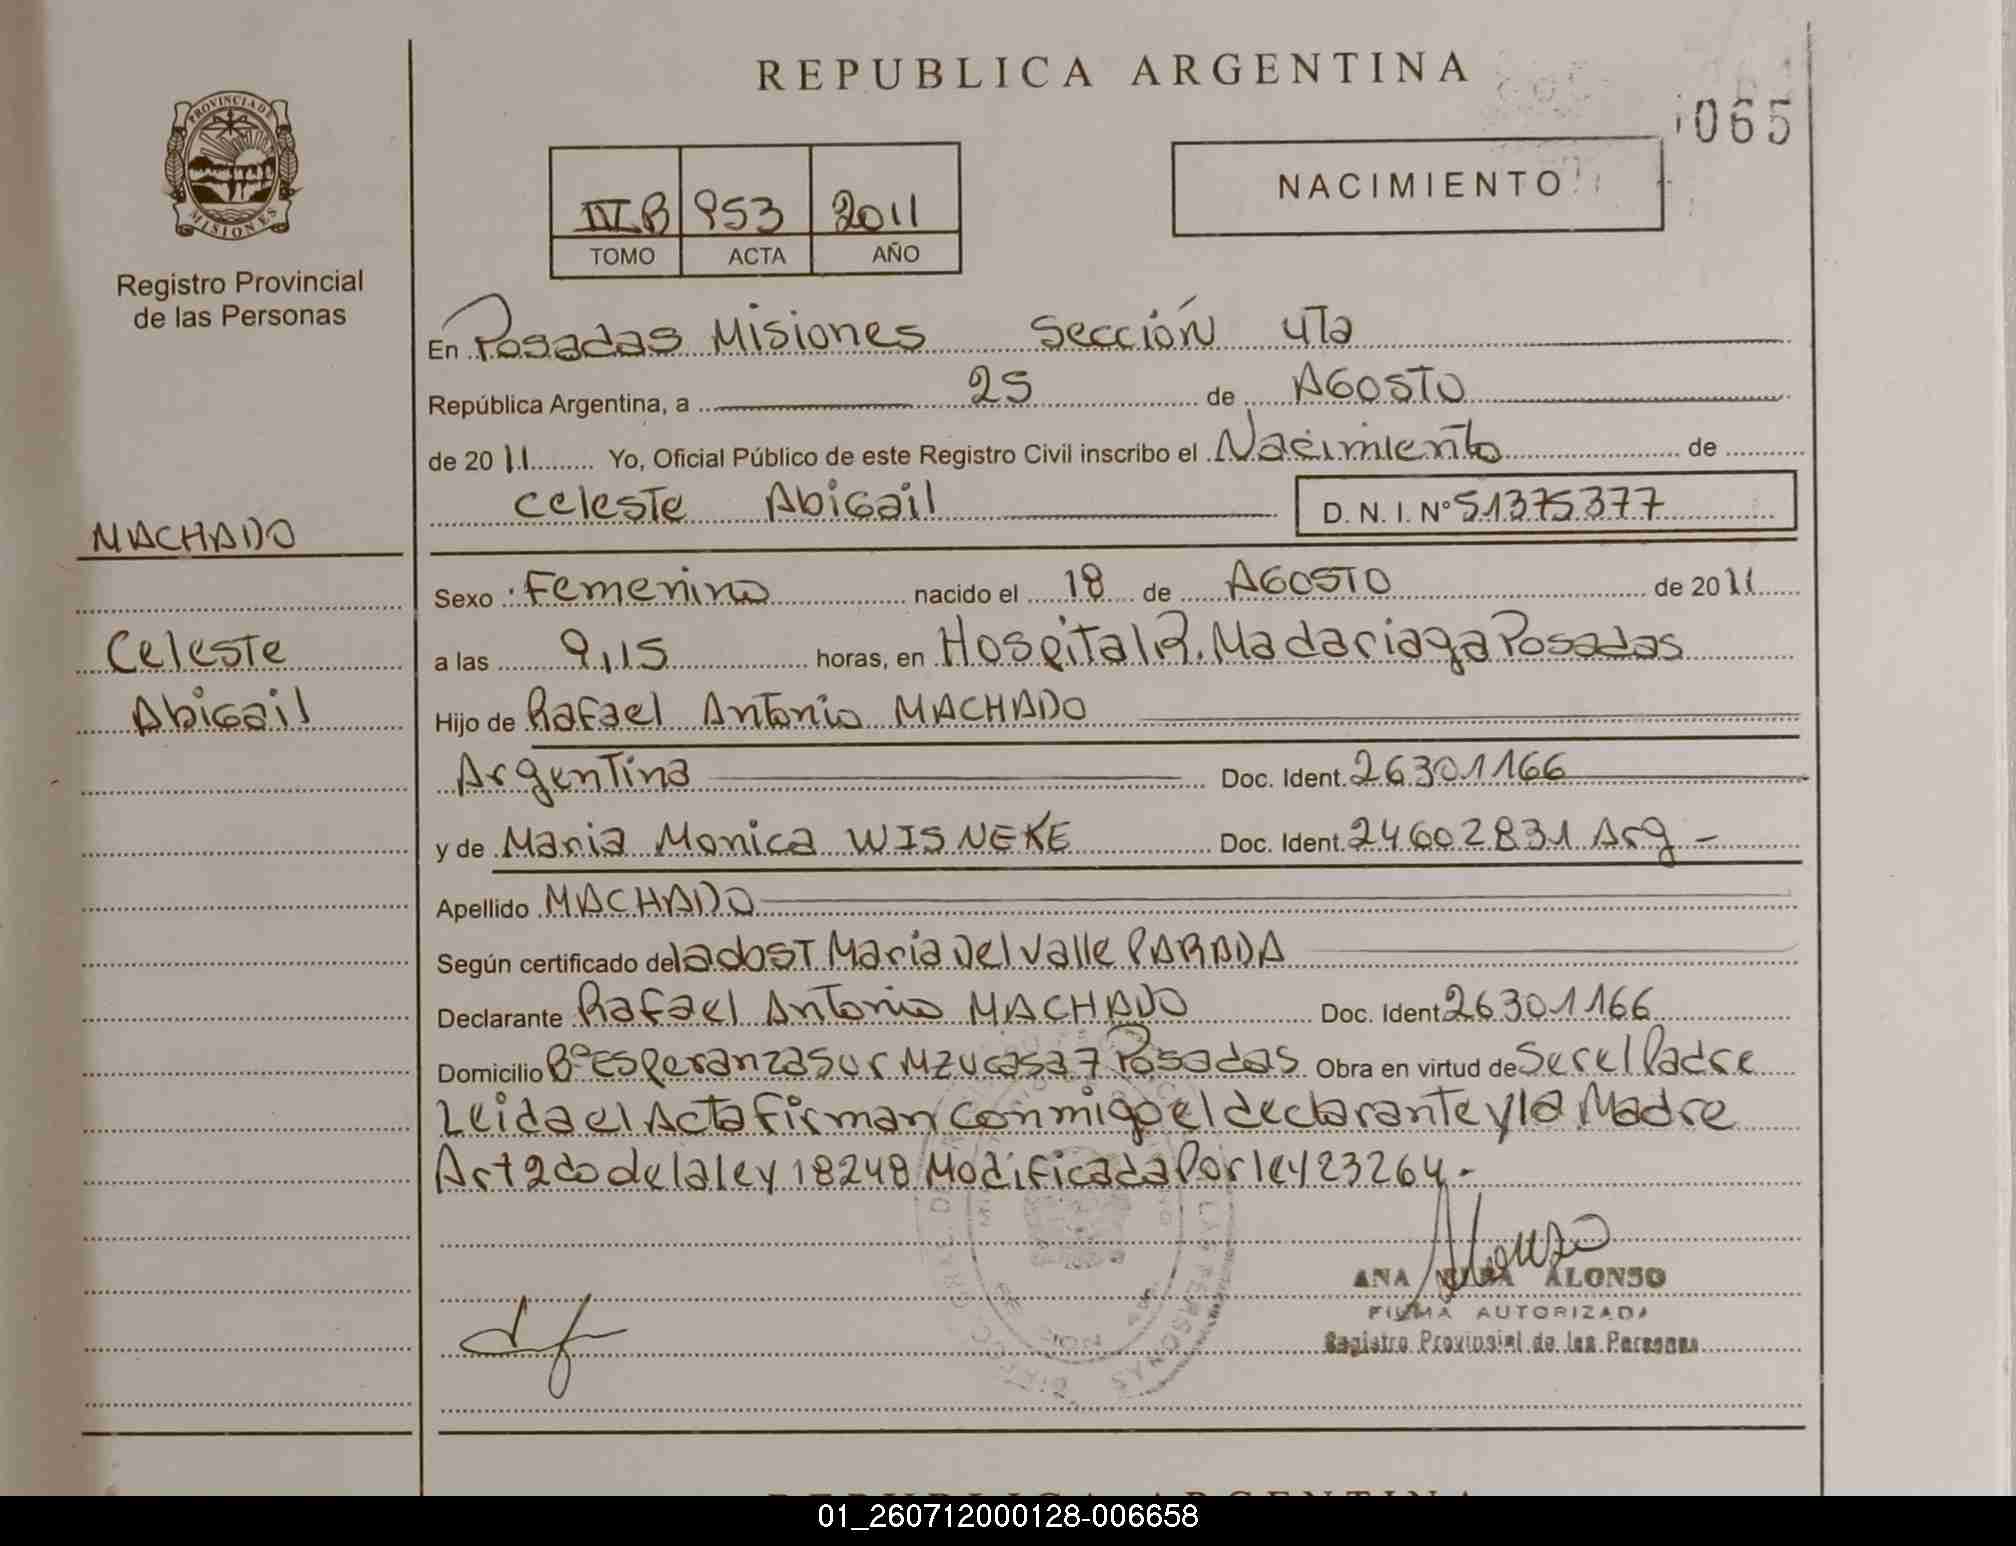 REPUBLICA ARGENTINA
065
PROVINCIA DE
MISIONES
Registro Provincial
de las Personas
IV B 953 2011
TOMO ACTA AÑO
NACIMIENTO
En Posadas Misiones Sección 4Ta
República Argentina, a 25 de AGOSTO
de 2011 Yo, Oficial Público de este Registro Civil inscribo el Nacimiento de
Celeste Abigail D. N. I. Nº 51375377
MACHADO
Celeste
Abigail
Sexo Femenino nacido el 18 de AGOSTO de 2011
a las 9,15 horas, en Hospital R. Madariaga Posadas
Hijo de Rafael Antonio MACHADO
Argentina Doc. Ident. 26301166
y de Maria Monica WISNEKE Doc. Ident. 24602831 Arg -
Apellido MACHADO
Según certificado de la obst Maria Del Valle PARADA
Declarante Rafael Antonio MACHADO Doc. Ident 26301166
Domicilio Bº Esperanza Sur Mz U casa 7 Posadas Obra en virtud de Ser el Padre
Leida el Acta Firman Conmigo el declarante y la Madre
Art 2do de la ley 18248 Modificada Por ley 23264 -
Alonso
ANA ALONSO
FIRMA AUTORIZADA
Registro Provincial de las Personas
REPUBLICA ARGENTINA
01_260712000128-006658